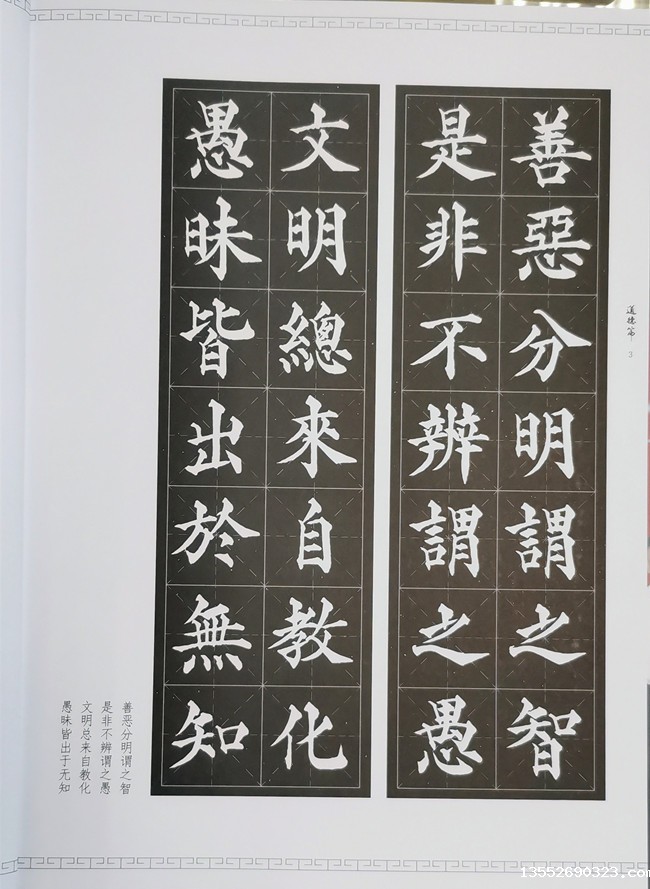 善惡分明謂之智
是非不辨謂之愚
文明總來自教化
愚昧皆出於無知
道德篇 3
善恶分明谓之智
是非不辨谓之愚
文明总来自教化
愚昧皆出于无知
13552690323.com